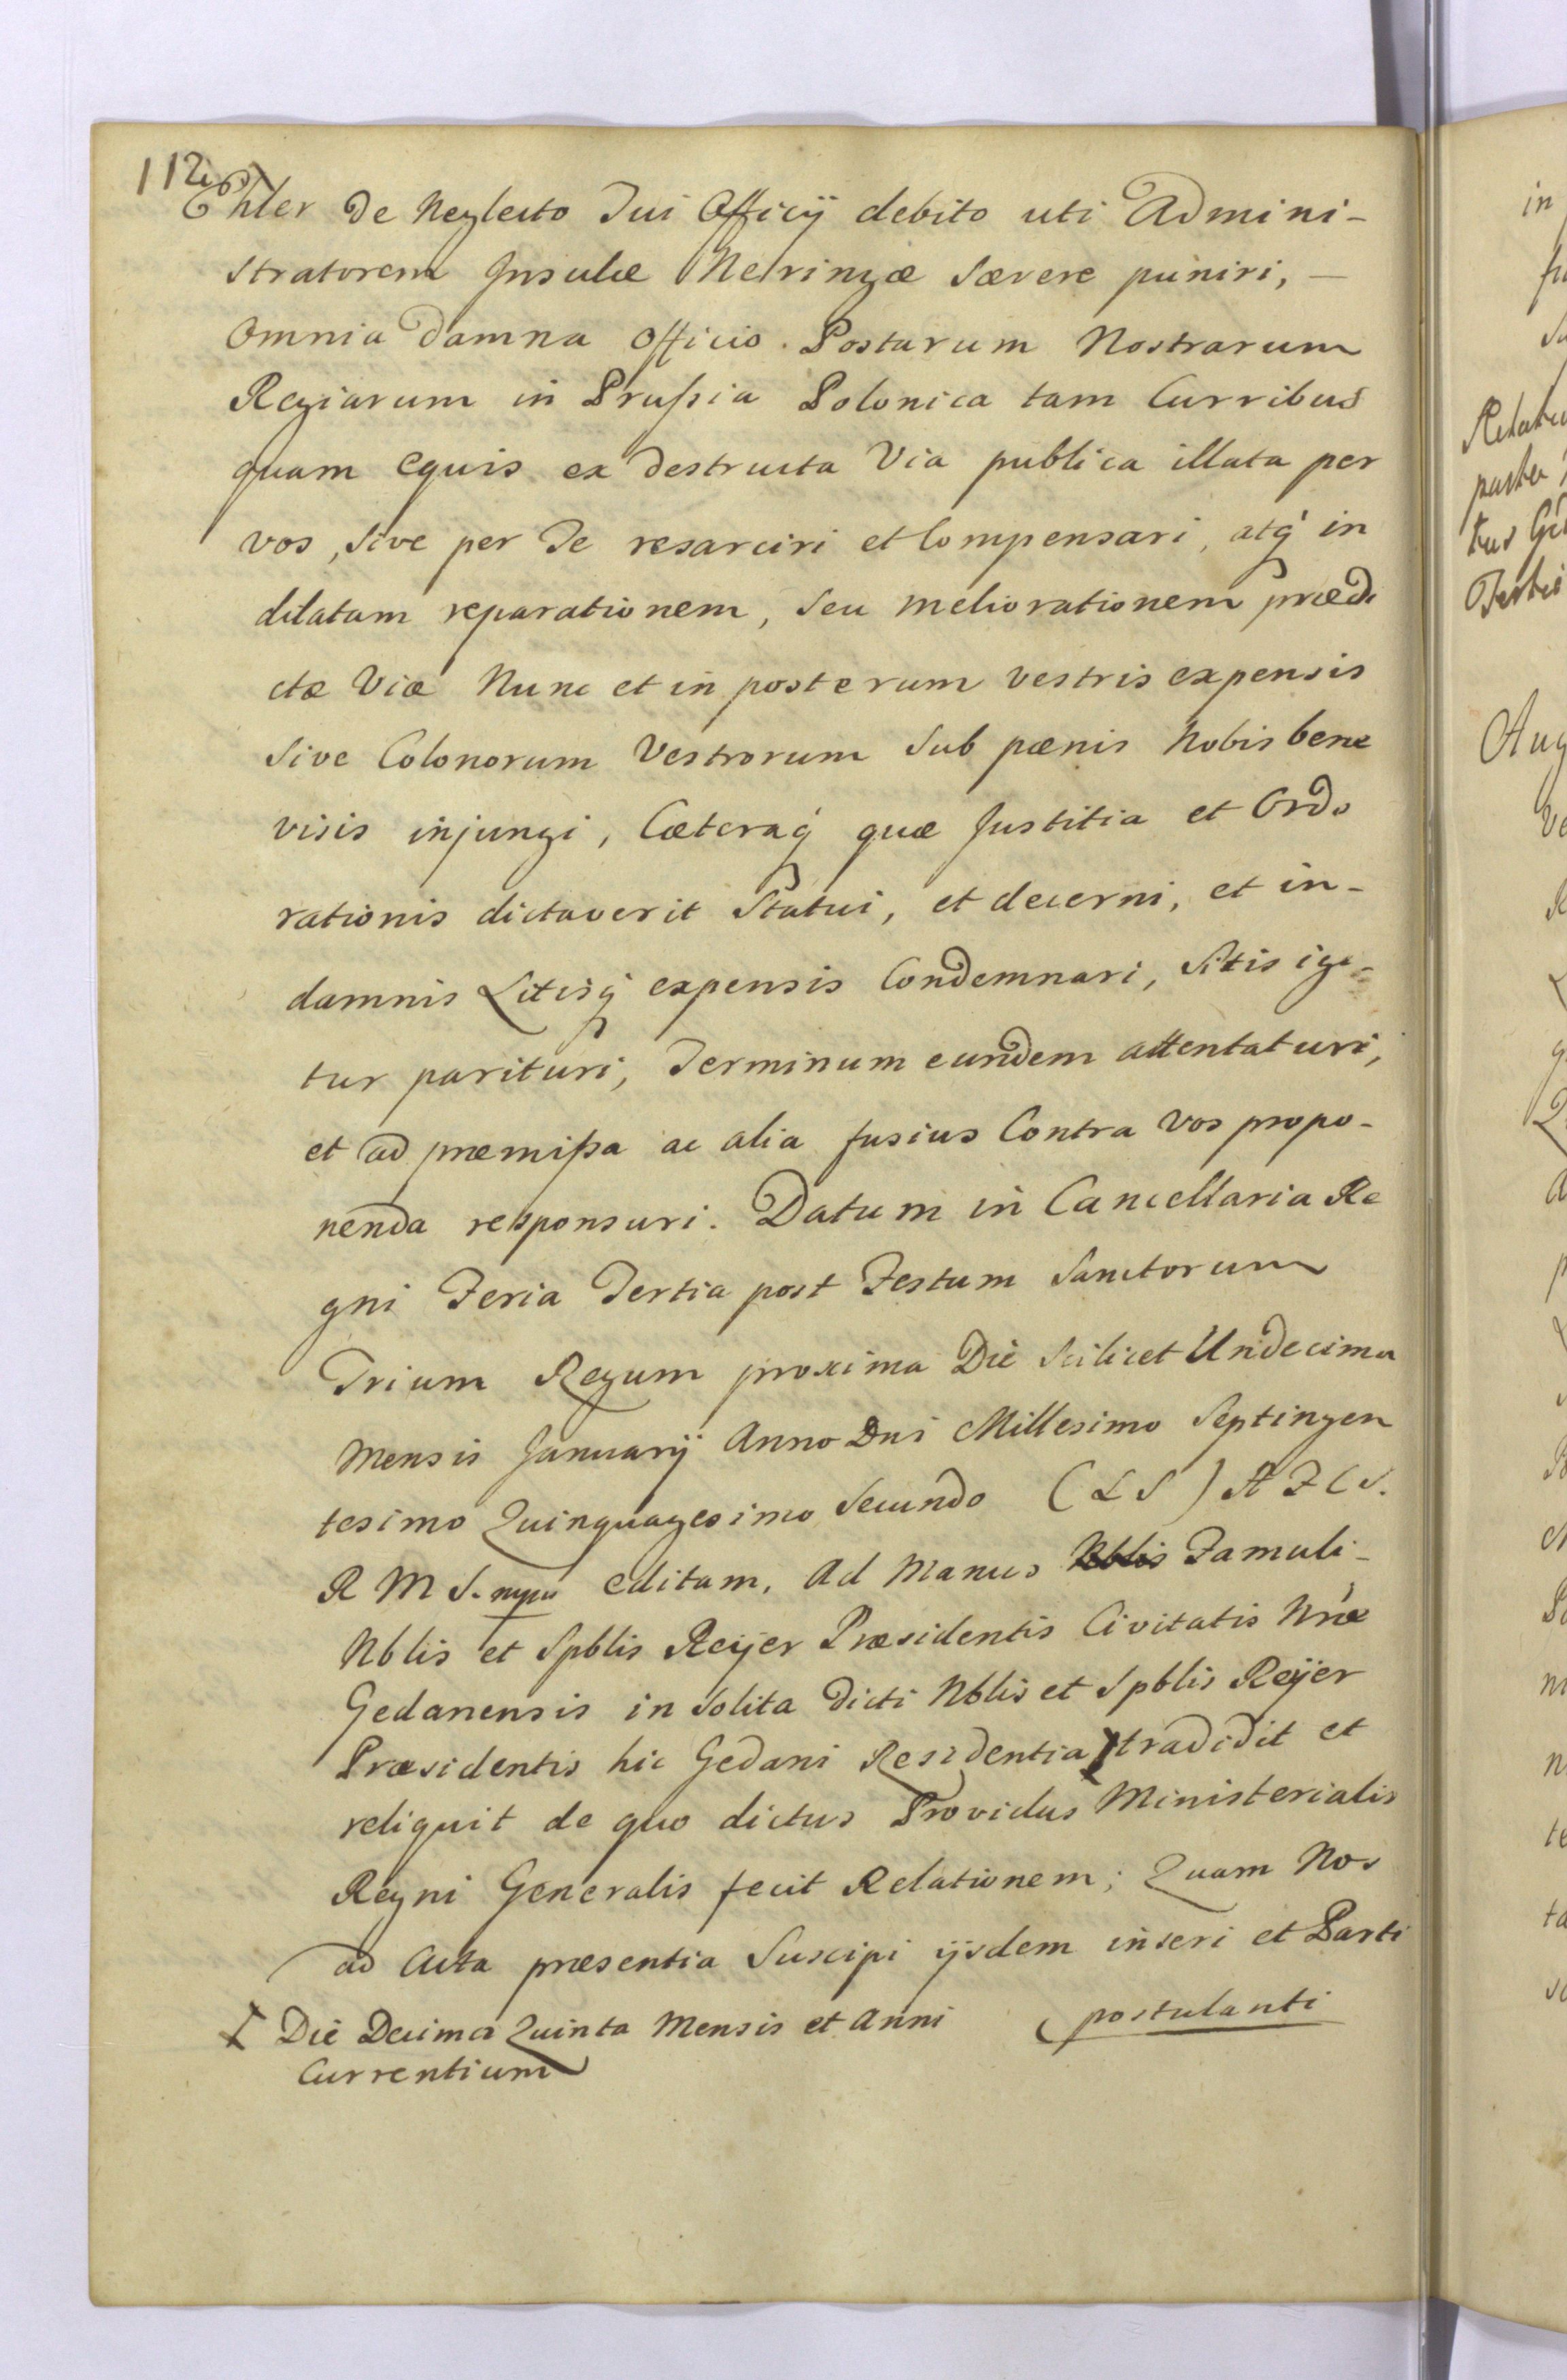 112
Ehler de Neglecto Tui Officij debito uti Admini-
stratorem Insulæ Neringæ Sævere puniri, —
Omnia Damna Officio Postarum Nostrarum
Regiarum in Prußia Polonica tam Curribus
quam Equis ex Destructa Via publica illata per
vos, sive per Te resarciri et Compensari, atq́ in
dilatam reparationem, seu meliorationem prædi
ctæ Viæ Nunc et in posterum vestris expensis
Sive Colonorum Vestrorum Sub pænis Nobis bene
visis injungi, Cæteraq́ quæ Justitia et Ordo
rationis dictaverit Statui, et decerni, et in-
damnis Litisq́ expensis Condemnari, Sitis igi-
tur parituri, Terminum eundem attentaturi,
et ad præmißa ac alia fusius Contra Vos propo-
nenda responsuri. Datum in Cancellaria Re
gni Feria Tertia post Festum Sanctorum
Trium Regum proxima Die Scilicet Undecima
Mensis Januarij Anno Dni Millesimo Septingen
tesimo Quinquagesimo Secundo (L S) A F C S.
R M S. mpu editam, Ad Manus Famuli
Nblis et Spblis Reÿer Præsidentis Civitatis Nræ
Gedanensis in Solita dicti Nblis et Spblis Reÿer
Præsidentis hic Gedani Residentia tradidit et
reliquit de quo dictus Providus Ministerialis
Regni Generalis fecit Relationem; Quam Nos
ad Acta præsentia Suscipi ijsdem inseri et Parti
postulanti
Die Decima Quinta Mensis et Anni
Currentium
in
Relatio
Aug